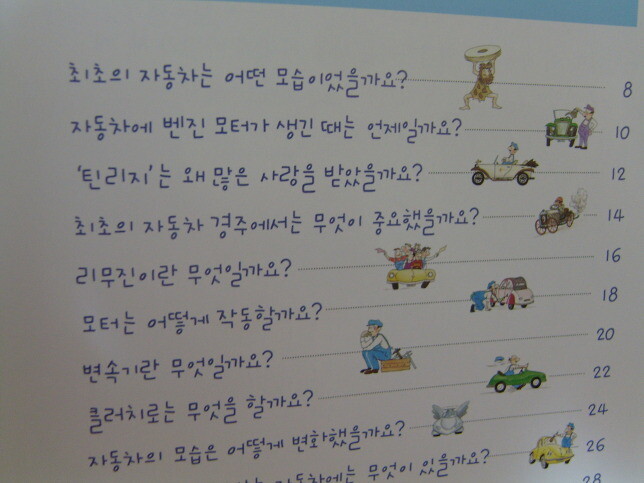 최초의 자동차는 어떤 모습이었을까요? 8
자동차에 벤진 모터가 생긴 때는 언제일까요? 10
'틴 리지'는 왜 많은 사랑을 받았을까요? 12
최초의 자동차 경주에서는 무엇이 중요했을까요? 14
리무진이란 무엇일까요? 16
모터는 어떻게 작동할까요? 18
변속기란 무엇일까요? 20
클러치로는 무엇을 할까요? 22
자동차의 모습은 어떻게 변화했을까요? 24
자동차에는 무엇이 있을까요? 26
28